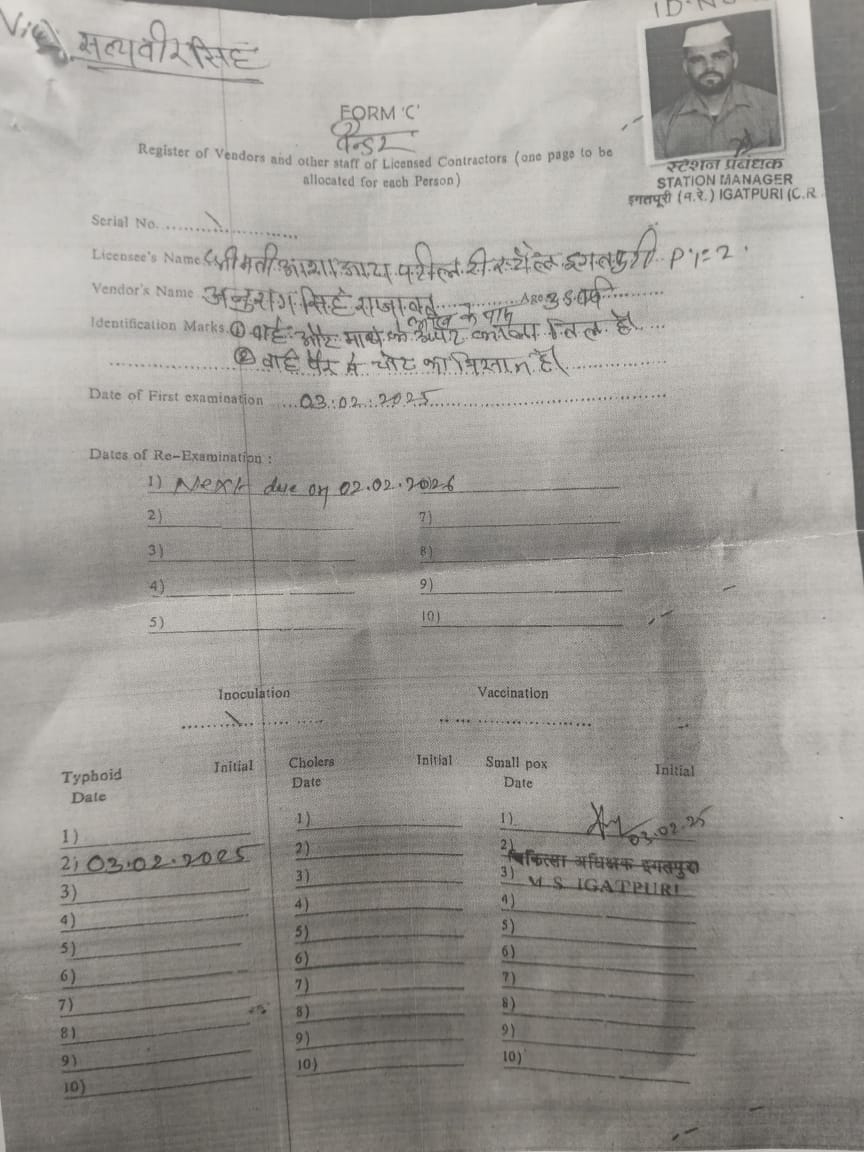 ID-No
सत्यवीर सिंह
FORM 'C'
वेन्डर
Register of Vendors and other staff of Licensed Contractors (one page to be
allocated for each Person)
स्टेशन प्रबंधक
STATION MANAGER
इगतपूरी (म.रे.) IGATPURI (C.R
Serial No.
Licensee's Name श्रीमती आशा पटील टी स्टॉल इगतपुरी
Vendor's Name अनुराग सिंह राजावत AGE 35 वर्ष
आँख के पास
Identification Marks ① बाई और माथे के ऊपर काला तिल है
② बाई पैर में चोट का निशान है।
Date of First examination 03.02.2025
Dates of Re-Examination :
1) Next due on 02.02.2026
2) 7)
3) 8)
4) 9)
5) 10)
Inoculation Vaccination
Typhoid Initial Cholers Initial Small pox Initial
Date Date Date
1) 1) 1) 03.02.25
2) 03.02.2025 2) 2) चिकित्सा अधिक्षक इगतपुरी
3) 3) 3) M S. IGATPURI
4) 4) 4)
5) 5) 5)
6) 6) 6)
7) 7) 7)
8) 8) 8)
9) 9) 9)
10) 10) 10)